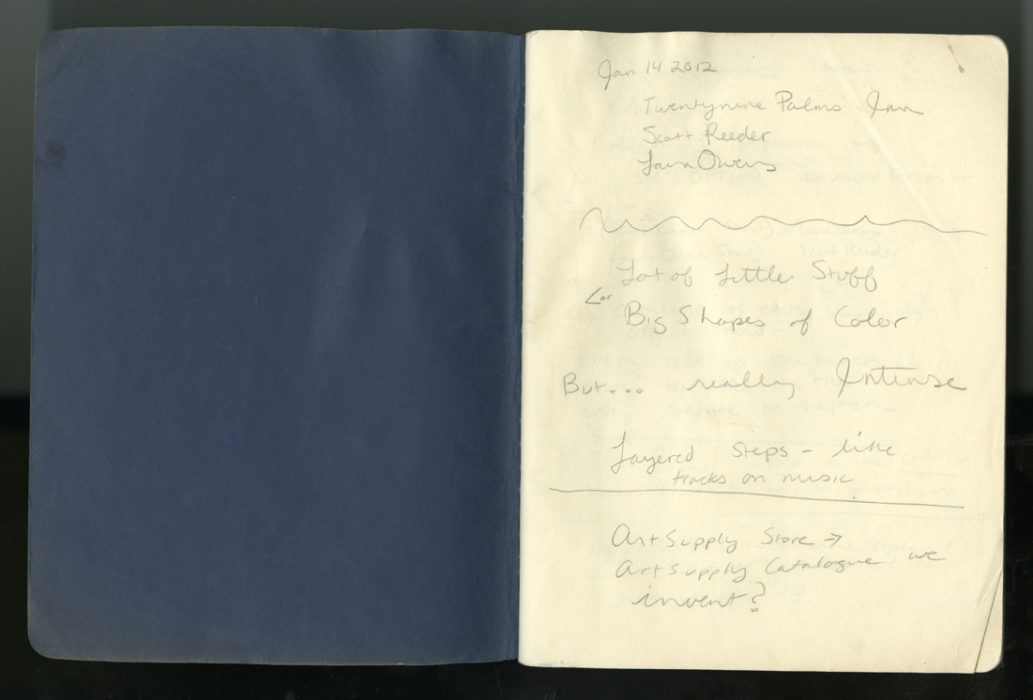 Jan 14 2012
Twentynine Palms Inn
Scott Reeder
Laura Owens
Lot of Little Stuff
<or
Big Shapes of Color
But... really Intense
Layered Steps - like
tracks on music
Art Supply Store →
Art Supply Catalogue we
invent?